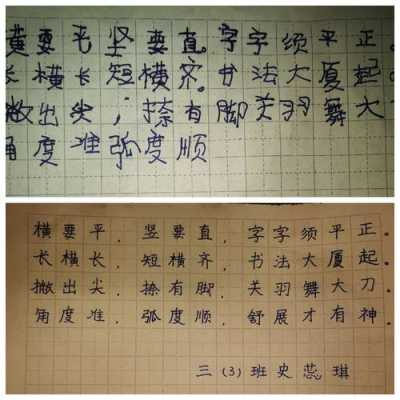 横要平竖要直。字字须平正。
长横长短横齐。书法大厦起
撇出尖,捺有脚关羽舞大
角度准弧度顺
横要平,竖要直,字字须平正。
长横长,短横齐,书法大厦起。
撇出尖,捺有脚,关羽舞大刀
角度准,弧度顺,舒展才有神。
三(3)班史蕊琪